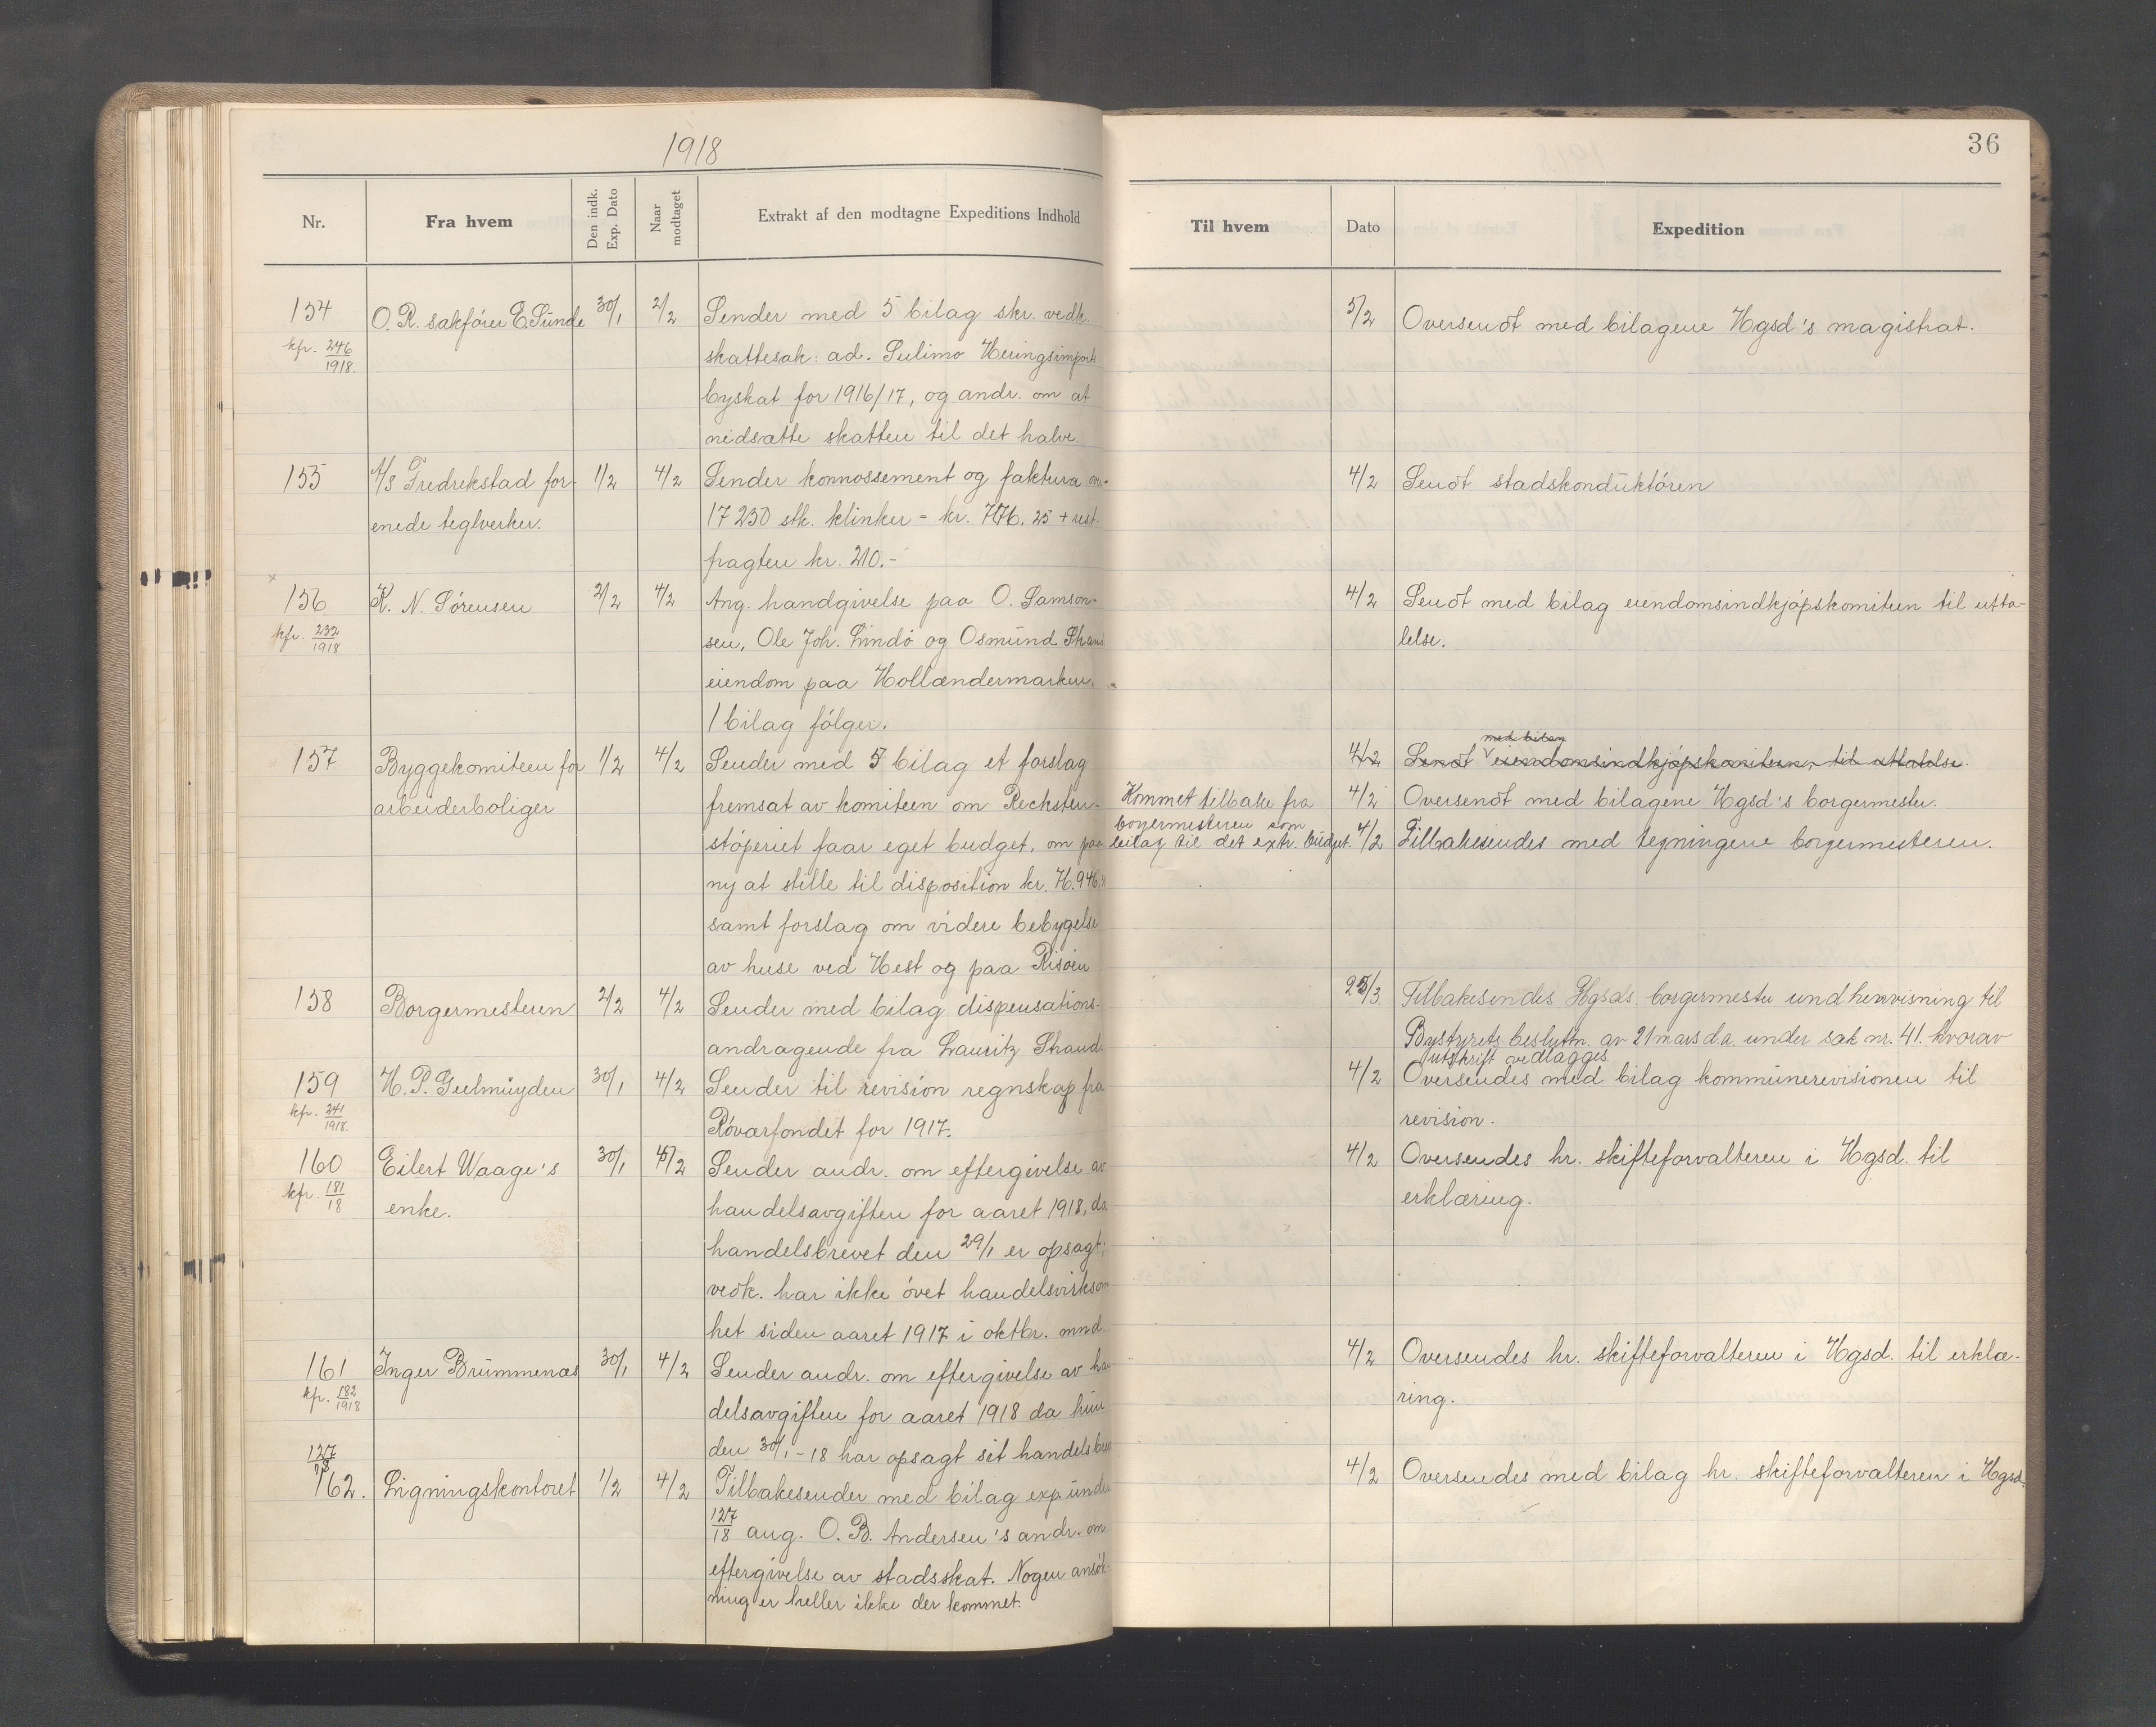 1918
36
Nr.
Fra hvem
Den indk. Exp. Dato
Naar modtaget
Extrakt af den modtagne Expeditions Indhold
Til hvem
Dato
Expedition
154
kfr. 246/1918.
O. R. sakfører E. Sunde
30/1
2/2
Sender med 5 bilag skr. vedk.
skattesak: ad. Sulimo Heringsimport
byskat for 1916/17, og andr. om at
nidsætte skatten til det halve.
5/2
Oversendt med bilagene Hgsd's magistrat.
155
A/S Fredrekstad for-
enede teglverker.
1/2
4/2
Sender konnossement og faktura over
17250 stk. klinker = kr. 776.25 + rest
fragten kr. 210.-
4/2
Sendt stadskonduktøren
156
kfr. 232/1918
K. N. Sørensen
2/2
4/2
Ang. handgivelse paa O. Samson-
sen, Ole Joh. Lindø og Osmund
eiendom paa Hollændermarken.
1 bilag følger.
4/2
Sendt med bilag eiendomsindkjøpskomiteen til utta-
lelse.
157
Byggekomiteen for
arbeiderboliger
1/2
4/2
Sender med 5 bilag et forslag
fremsat av komiteen om Recksten-
støperiet faar eget budget, om paa
ny at stille til disposition kr.
samt forslag om videre bebygelse
av huse ved Hest og paa Risøen
med bilag
4/2
Sendt eiendomsindkjøpskomiteen, til uttalelse.
4/2
Oversendt med bilagene Hgsd's borgermester.
Kommet tilbake fra
borgermesteren som
bilag til det extr. budget.
4/2
Tilbakesendes med tegningene borgermesteren.
158
Borgermesteren
2/2
4/2
Sender med bilag dispensations-
andragende fra Lauritz Strand.
25/3
Tilbakesendes Hgsds. borgermester und henvisning til
Bystyrets beslutn. av 21 mars d.a. under sak nr. 41. hvorav
utskrift vedlægges
159
kfr. 241/1918.
H. P. Geelmuyden
30/1
4/2
Sender til revision regnskap fra
Røvarfondet for 1917.
4/2
Oversendes med bilag kommunerevisionen til
revision.
160
kfr. 181/18
Eilert Waage's
enke.
30/1
4/2
Sender andr. om eftergivelse av
handelsavgiften for aaret 1918, da
handelsbrevet den 29/1 er opsagt;
vedk. har ikke øvet handelsvirksom
het siden aaret 1917 i oktbr. mnd.
4/2
Oversendes hr. skifteforvalteren i Hgsd. til
erklæring.
161
kfr. 182/1918
Inger Brummenæs
30/1
4/2
Sender andr. om eftergivelse av han
delsavgiften for aaret 1918 da hun
den 30/1-18 har opsagt sit handelsbrev
4/2
Oversendes hr. skifteforvalteren i Hgsd. til erklæ-
ring.
127/18
162.
Ligningskontoret
1/2
4/2
Tilbakesender med bilag exp. under
127/18 ang. O. B. Andersen's andr. om
eftergivelse av stadsskat. Nogen ansøk-
ning er heller ikke der kommet.
4/2
Oversendes med bilag hr. skifteforvalteren i Hgsd.